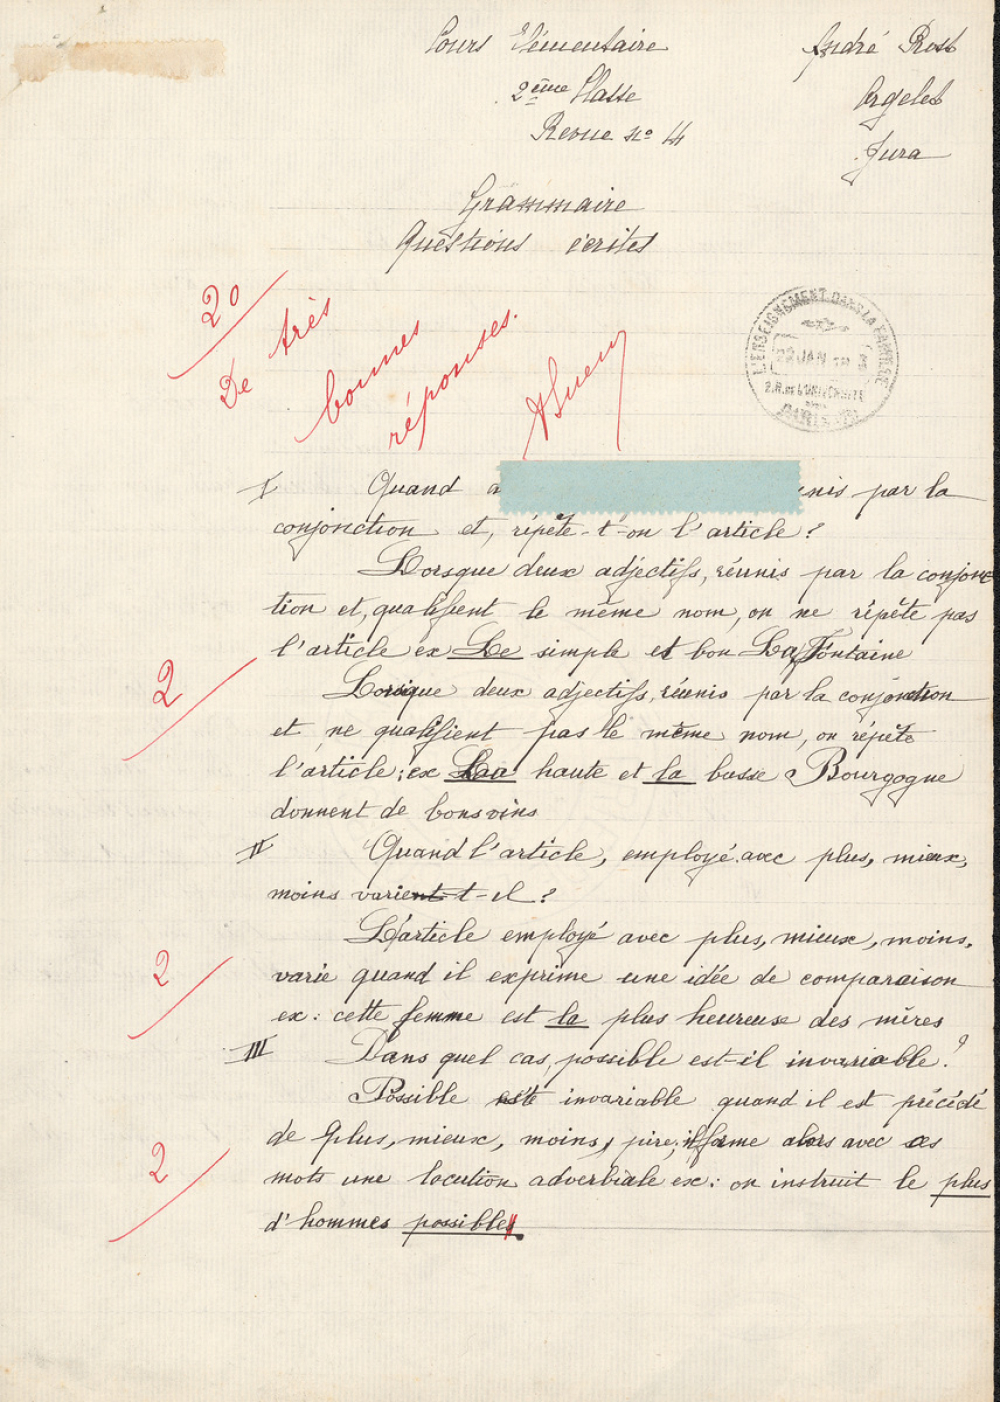 Cours Élémentaire
André Rost
2ème Classe
Orgelet
Revue nº 14
Jura
Grammaire
Questions écrites
20
De très
bonnes
réponses.
L'ENSEIGNEMENT DANS LA FAMILLE
JAN
2.R. de L'UNIVERSITÉ
PARIS
I Quand a unis par la
conjonction et, répète-t-on l'article ?
Lorsque deux adjectifs, réunis par la conjonc
tion et, qualifient le même nom, on ne répète pas
l'article ex Le simple et bon La Fontaine
2
Lorsque deux adjectifs, réunis par la conjonction
et ne qualifient pas le même nom, on répète
l'article ; ex La haute et la basse Bourgogne
donnent de bons vins
II Quand l'article, employé avec plus, mieux,
moins varient-t-il ?
L'article employé avec plus, mieux, moins,
2
varie quand il exprime une idée de comparaison
ex : cette femme est la plus heureuse des mères
III Dans quel cas, possible est-il invariable ?
Possible est invariable quand il est précédé
de plus, mieux, moins, pire ; il forme alors avec ces
2
mots une locution adverbiale ex : on instruit le plus
d'hommes possible